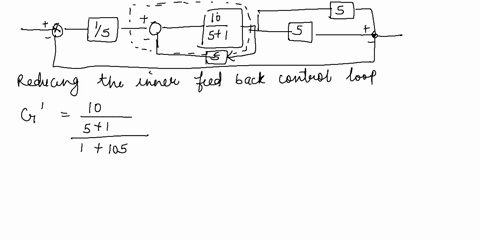 5
+
-
1/5
+
-
10
5+1
5
+
-
5
Reducing the inner feed back control loop
G' = 10
5+1
1 + 105